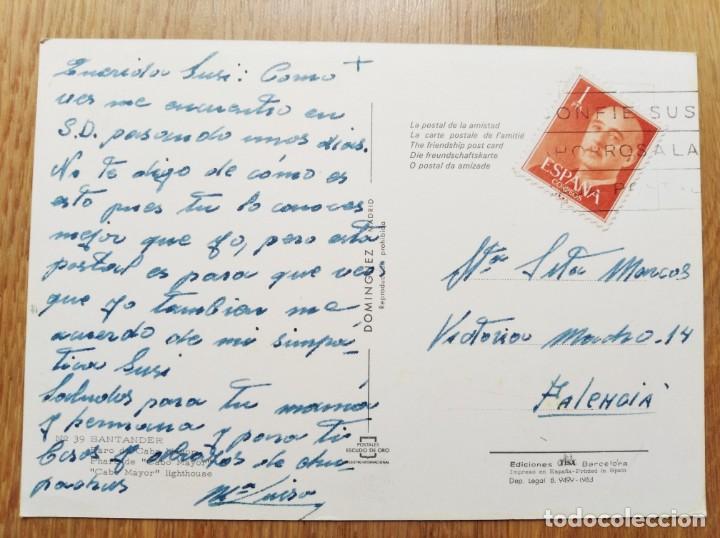 +
Querida Susi: Como
ves me encuentro en
S.D. pasando unos días.
No te digo de cómo es
esto pues tu lo conoces
mejor que yo, pero esta
postal es para que veas
que yo tambien me
acuerdo de mi simpá-
tica Susi
Saludos para tu mamá
y hermana y para ti
besos y abrazos de
Mª Luisa
Nº 39 SANTANDER
Faro de Cabo Mayor
Phare de "Cabo Mayor"
"Cabo Mayor" lighthouse
DOMINGUEZ - MADRID
Reproducción prohibida
POSTALES
ESCUDO DE ORO
La postal de la amistad
La carte postale de l'amitié
The friendship post card
Die freundschaftskarte
O postal da amizade
1
ESPAÑA
CORREOS
ONFIE SUS
LA
Marcos
Victorio Macho-14
Palencia
Ediciones Barcelona
Impreso en España-Printed in Spain
Dep. Legal B. 9494-1963
todocoleccion.net